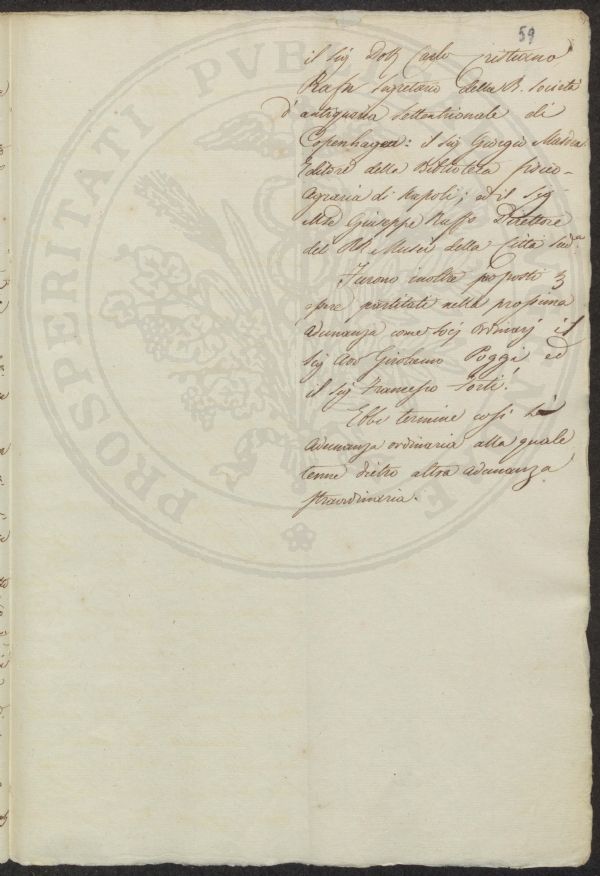 59
il Sig Dott Carlo Cristiano
Rafn Segretario della R. Società
d'antiquaria settentrionale di
Copenhagen: il Sig Giorgio
Editore della Biblioteca fisico-
Agraria di Napoli; ed il Sig
Giuseppe Ruffo Direttore
del Musei della Città
Furono inoltre proposti
partitate nella prossima
Adunanza come Socj Ordinarj il
Sig Avv Girolamo Poggi ed
il Sig Francesco Forti.
Ebbe termine così la
Adunanza ordinaria alla quale
tenne dietro altra adunanza
straordinaria.
PROSPERITATI PVBLICAE